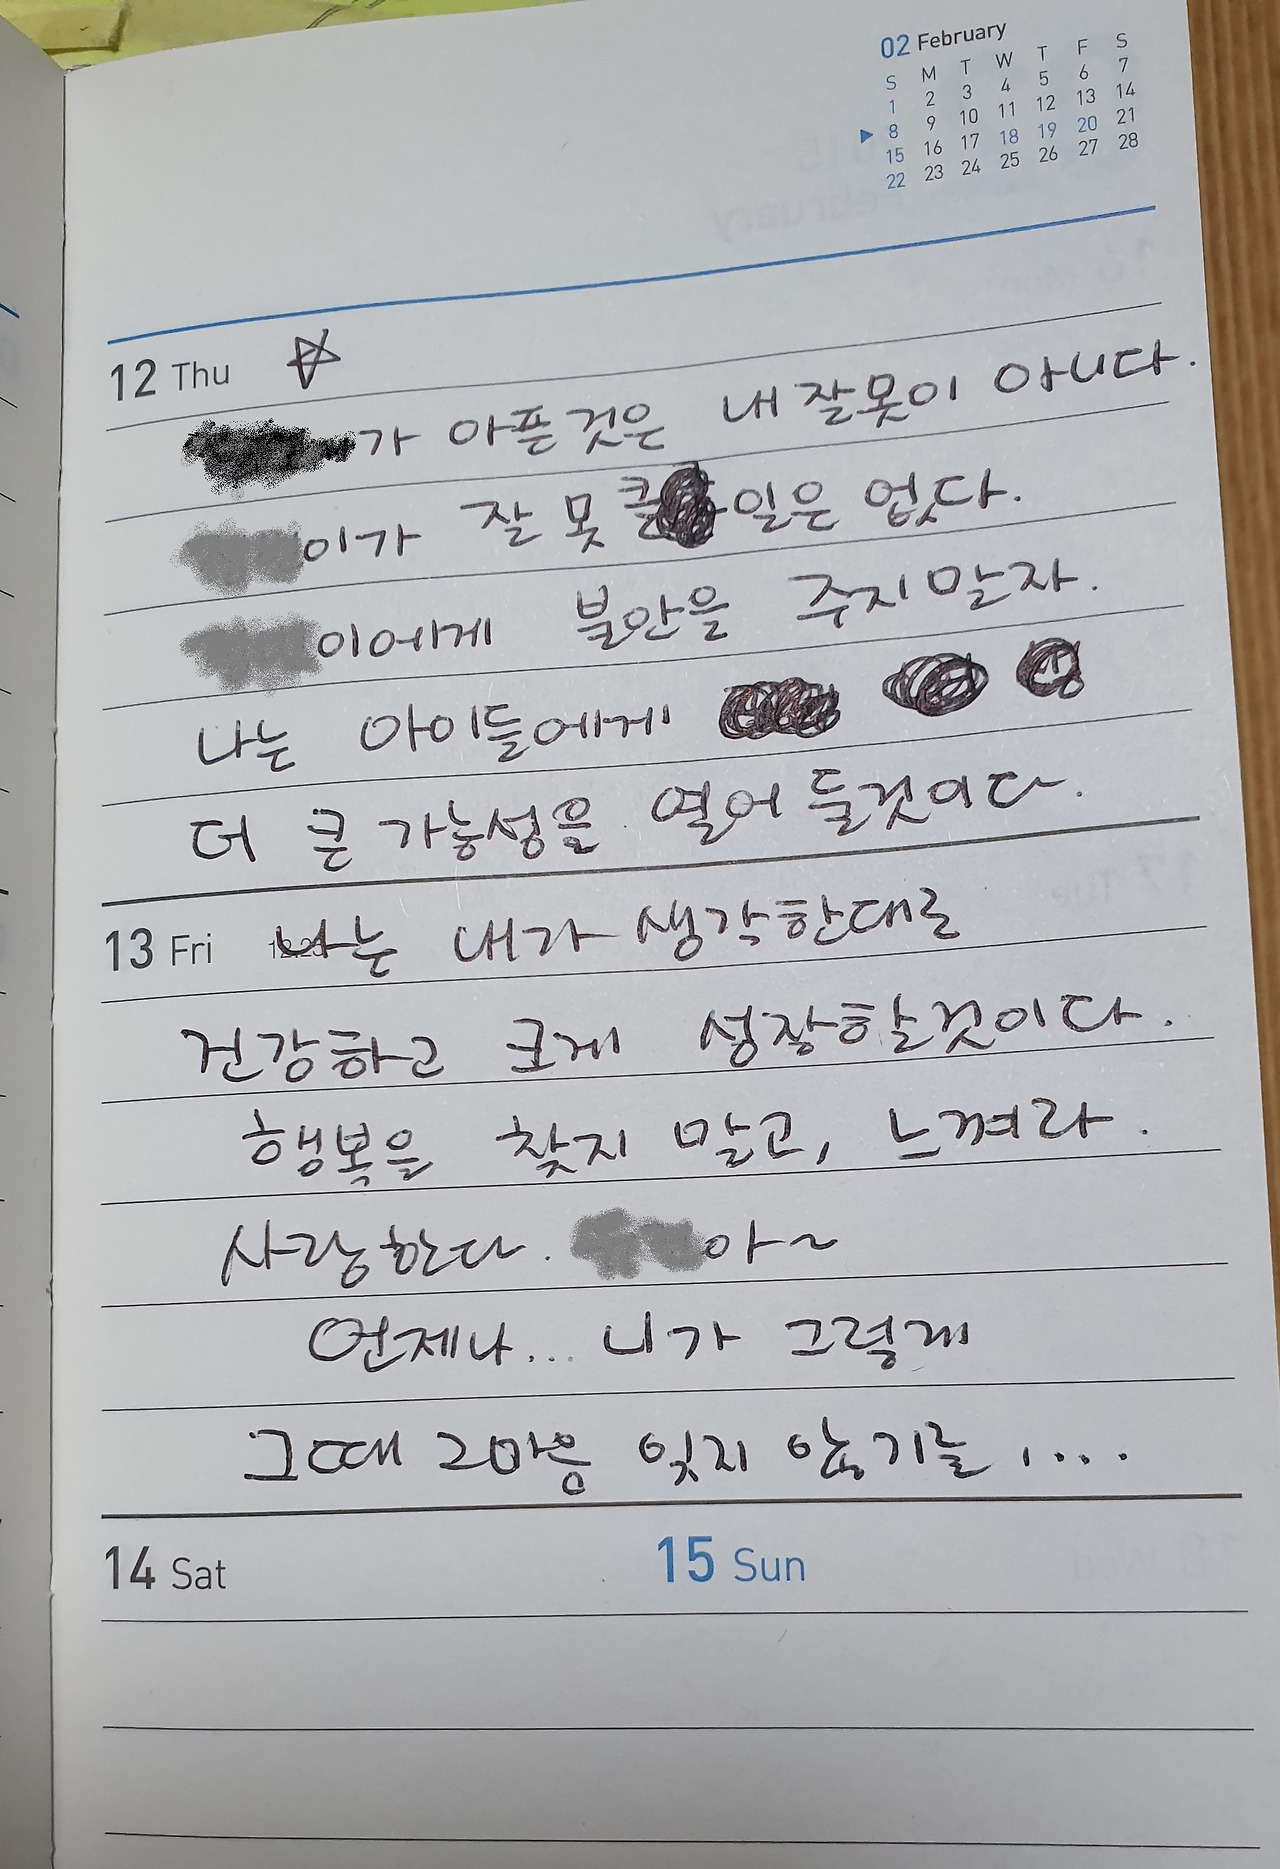 02 February
S M T W T F S
1 2 3 4 5 6 7
▶ 8 9 10 11 12 13 14
15 16 17 18 19 20 21
22 23 24 25 26 27 28
12 Thu ☆
가 아픈것은 내 잘못이 아니다.
이가 잘 못 클 일은 없다.
이에게 불안을 주지말자.
나는 아이들에게
더 큰 가능성을 열어 둘것이다.
13 Fri 나는 내가 생각한대로
건강하고 크게 성장할것이다.
행복을 찾지 말고, 느껴라.
사랑한다. 아~
언제나... 니가 그렇게
그때 그마음 잊지 않기를....
14 Sat 15 Sun